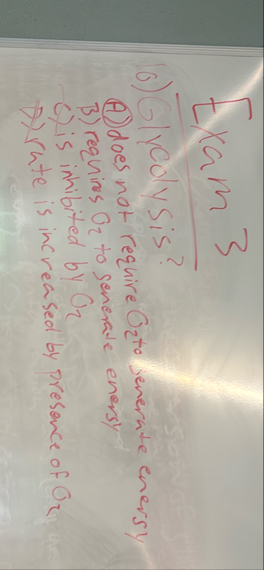 Exam 3
10) Glycolysis?
A) does not require O2 to generate energy
B) requires O2 to generate energy
C) is inhibited by O2
D) rate is increased by presence of O2